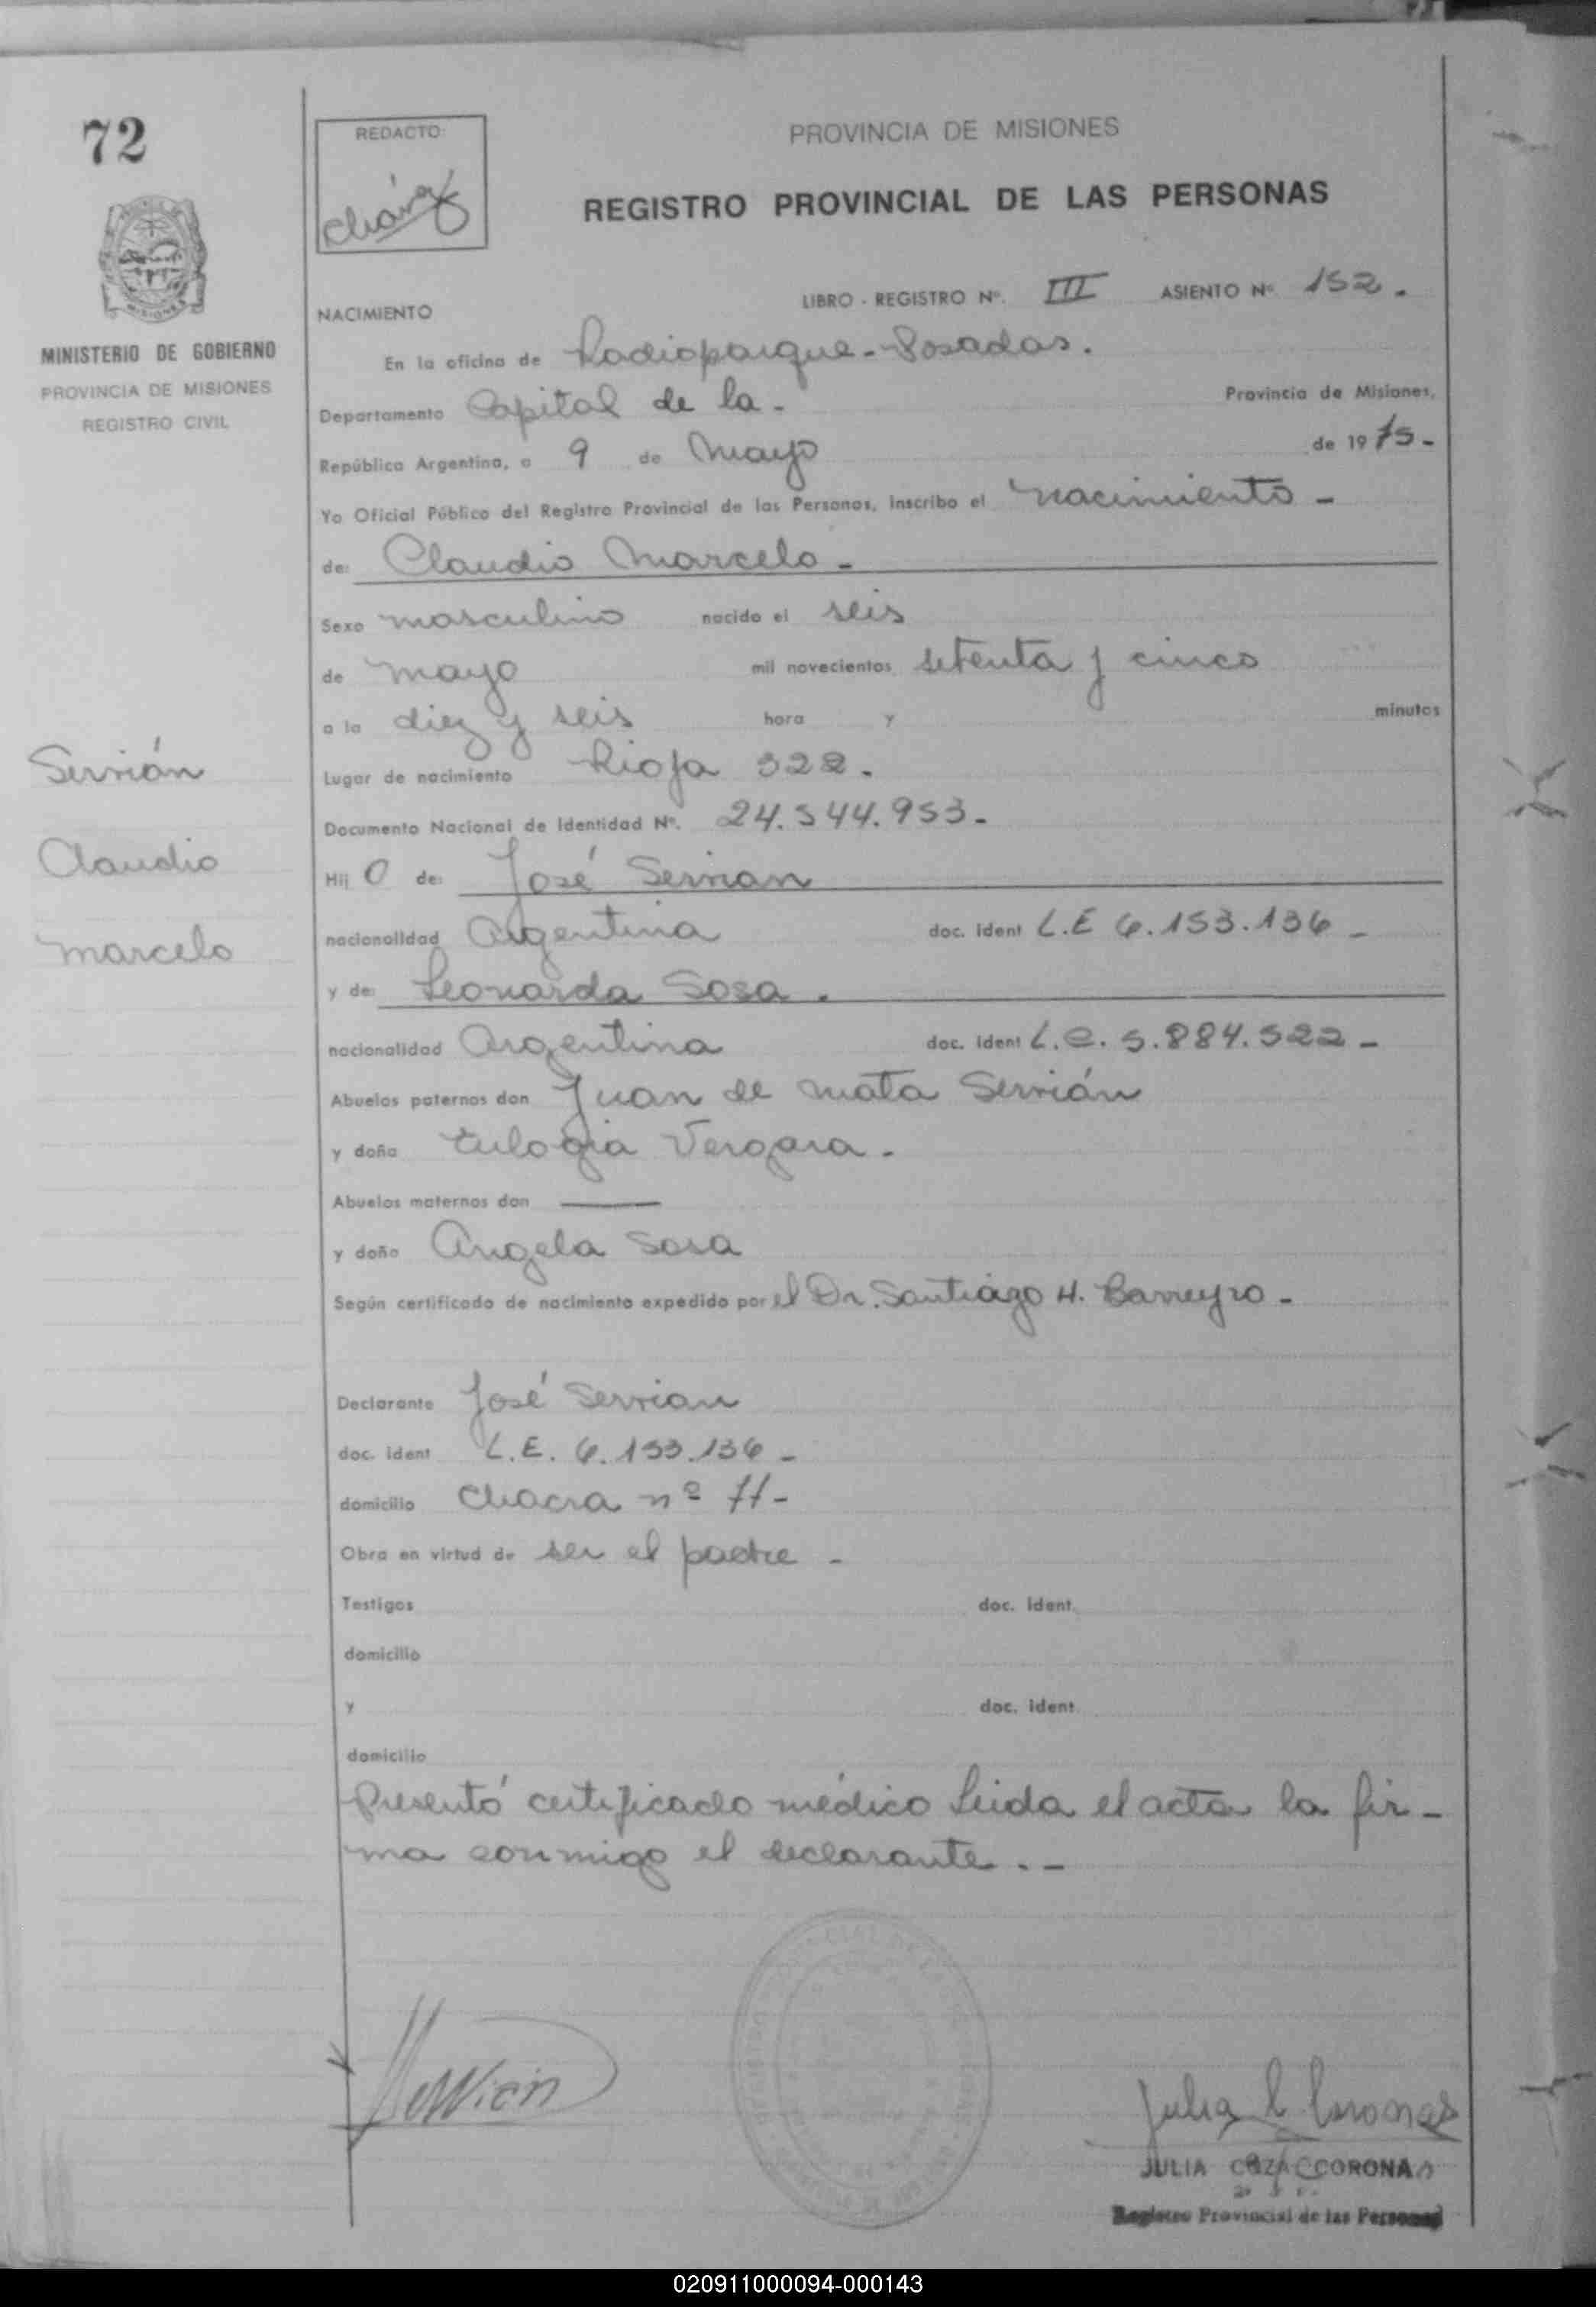 72
REDACTO:
PROVINCIA DE MISIONES
REGISTRO PROVINCIAL DE LAS PERSONAS
LIBRO - REGISTRO Nº. III ASIENTO Nº 152.
NACIMIENTO
MINISTERIO DE GOBIERNO
PROVINCIA DE MISIONES
REGISTRO CIVIL
En la oficina de Radioparque - Posadas.
Departamento Capital de la - Provincia de Misiones,
República Argentina, a 9 de Mayo de 1975-
Yo Oficial Público del Registro Provincial de las Personas, inscribo el nacimiento -
de: Claudio Marcelo -
Sexo masculino nacido el seis
de mayo mil novecientos setenta y cinco
a la diez y seis hora y minutos
Lugar de nacimiento Rioja 322.
Documento Nacional de Identidad Nº. 24.544.953-
Servián
Claudio
Marcelo
Hij O de: José Servian
nacionalidad Argentina doc. ident L.E 6.153.136 -
y de: Leonarda Sosa.
nacionalidad Argentina doc. ident L.C. 5.884.522 -
Abuelos paternos don Juan de Mata Servián
y doña Eulogia Vergara.
Abuelos maternos don ——
y doña Angela Sosa
Según certificado de nacimiento expedido por el Dr. Santiago H. Barreyro -
Declarante José Servian
doc. ident L.E. 6.153.136 -
domicilio Chacra nº 71-
Obra en virtud de ser el padre -
Testigos doc. ident.
domicilio
y doc. ident.
domicilio
Presentó certificado médico Leida el acta la fir-
ma conmigo el declarante. -
Servian
JULIA CORONA
Registro Provincial de las Personas
020911000094-000143